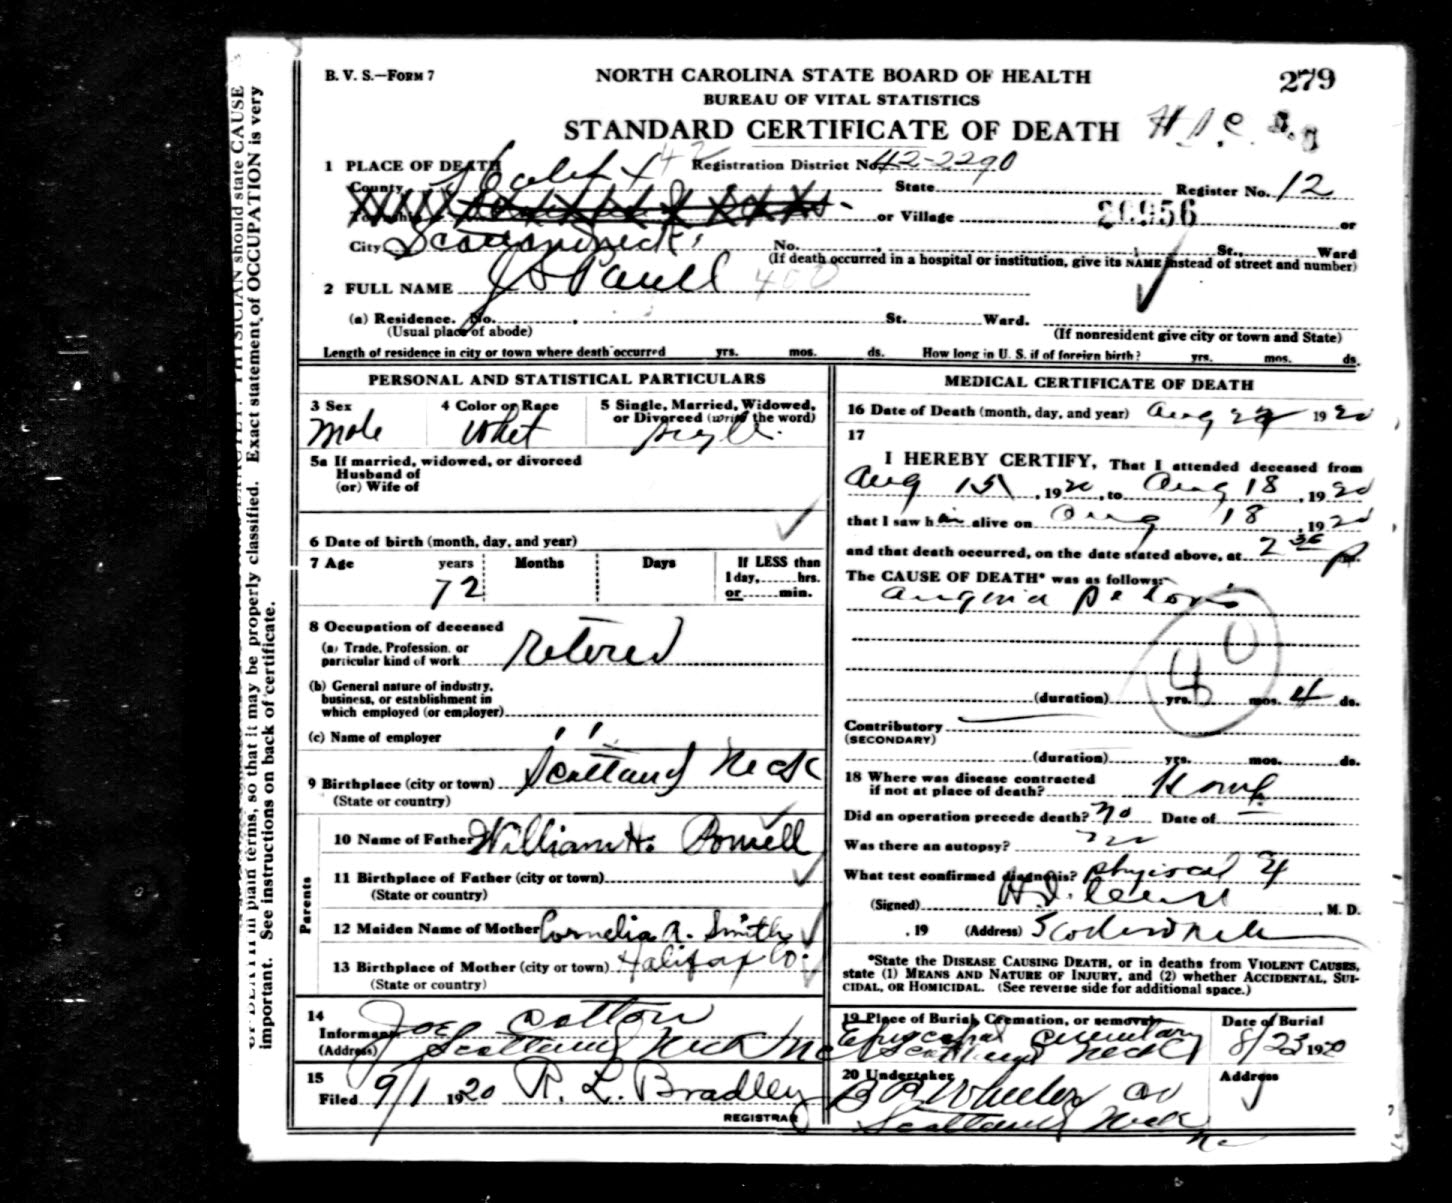 B. V. S.—Form 7
NORTH CAROLINA STATE BOARD OF HEALTH
279
BUREAU OF VITAL STATISTICS
STANDARD CERTIFICATE OF DEATH
1 PLACE OF DEATH
42
Registration District No. 42-2290
County
State
Register No. 12
Township
or Village
20956
or
City Scotland neck
No.
St., Ward
(If death occurred in a hospital or institution, give its NAME instead of street and number)
2 FULL NAME
400
(a) Residence. No. St. Ward.
(Usual place of abode)
(If nonresident give city or town and State)
Length of residence in city or town where death occurred yrs. mos. ds. How long in U. S. if of foreign birth? yrs. mos. ds.
PERSONAL AND STATISTICAL PARTICULARS
3 Sex
4 Color or Race
5 Single, Married, Widowed,
or Divorced (write the word)
Male
Whit
5a If married, widowed, or divorced
Husband of
(or) Wife of
6 Date of birth (month, day, and year)
7 Age years Months Days If LESS than
1 day, hrs.
or min.
72
8 Occupation of deceased
(a) Trade, Profession, or
particular kind of work
retired
(b) General nature of industry,
business, or establishment in
which employed (or employer)
(c) Name of employer
9 Birthplace (city or town) Scotland Neck
(State or country)
Parents
10 Name of Father William H. Powell
11 Birthplace of Father (city or town)
(State or country)
12 Maiden Name of Mother Cornelia A. Smith
13 Birthplace of Mother (city or town) Halifax Co.
(State or country)
14
Informant Cotton
(Address) Scotland Neck NC
15
Filed 9/1 1920 R. L. Bradley
REGISTRAR
MEDICAL CERTIFICATE OF DEATH
16 Date of Death (month, day, and year) Aug 1920
17
I HEREBY CERTIFY, That I attended deceased from
Aug 15, 1920, to Aug 18, 1920
that I saw him alive on Aug 18, 1920
and that death occurred, on the date stated above, at 2 p
The CAUSE OF DEATH* was as follows:
angina pectoris
40
(duration) yrs. mos. 4 ds.
Contributory
(SECONDARY)
(duration) yrs. mos. ds.
18 Where was disease contracted
if not at place of death? Home
Did an operation precede death? no Date of
Was there an autopsy? no
What test confirmed diagnosis? physical
(Signed) , M. D.
, 19 (Address)
*State the DISEASE CAUSING DEATH, or in deaths from VIOLENT CAUSES,
state (1) MEANS AND NATURE OF INJURY, and (2) whether ACCIDENTAL, SUI-
CIDAL, OR HOMICIDAL. (See reverse side for additional space.)
19 Place of Burial, Cremation, or removal
Date of Burial
Episcopal Cemetary
Scotland Neck
8/23 1920
20 Undertaker
Address
Wheeler Co
Scotland Neck
NC
PHYSICIAN should state CAUSE
OF DEATH in plain terms, so that it may be properly classified. Exact statement of OCCUPATION is very
important. See instructions on back of certificate.